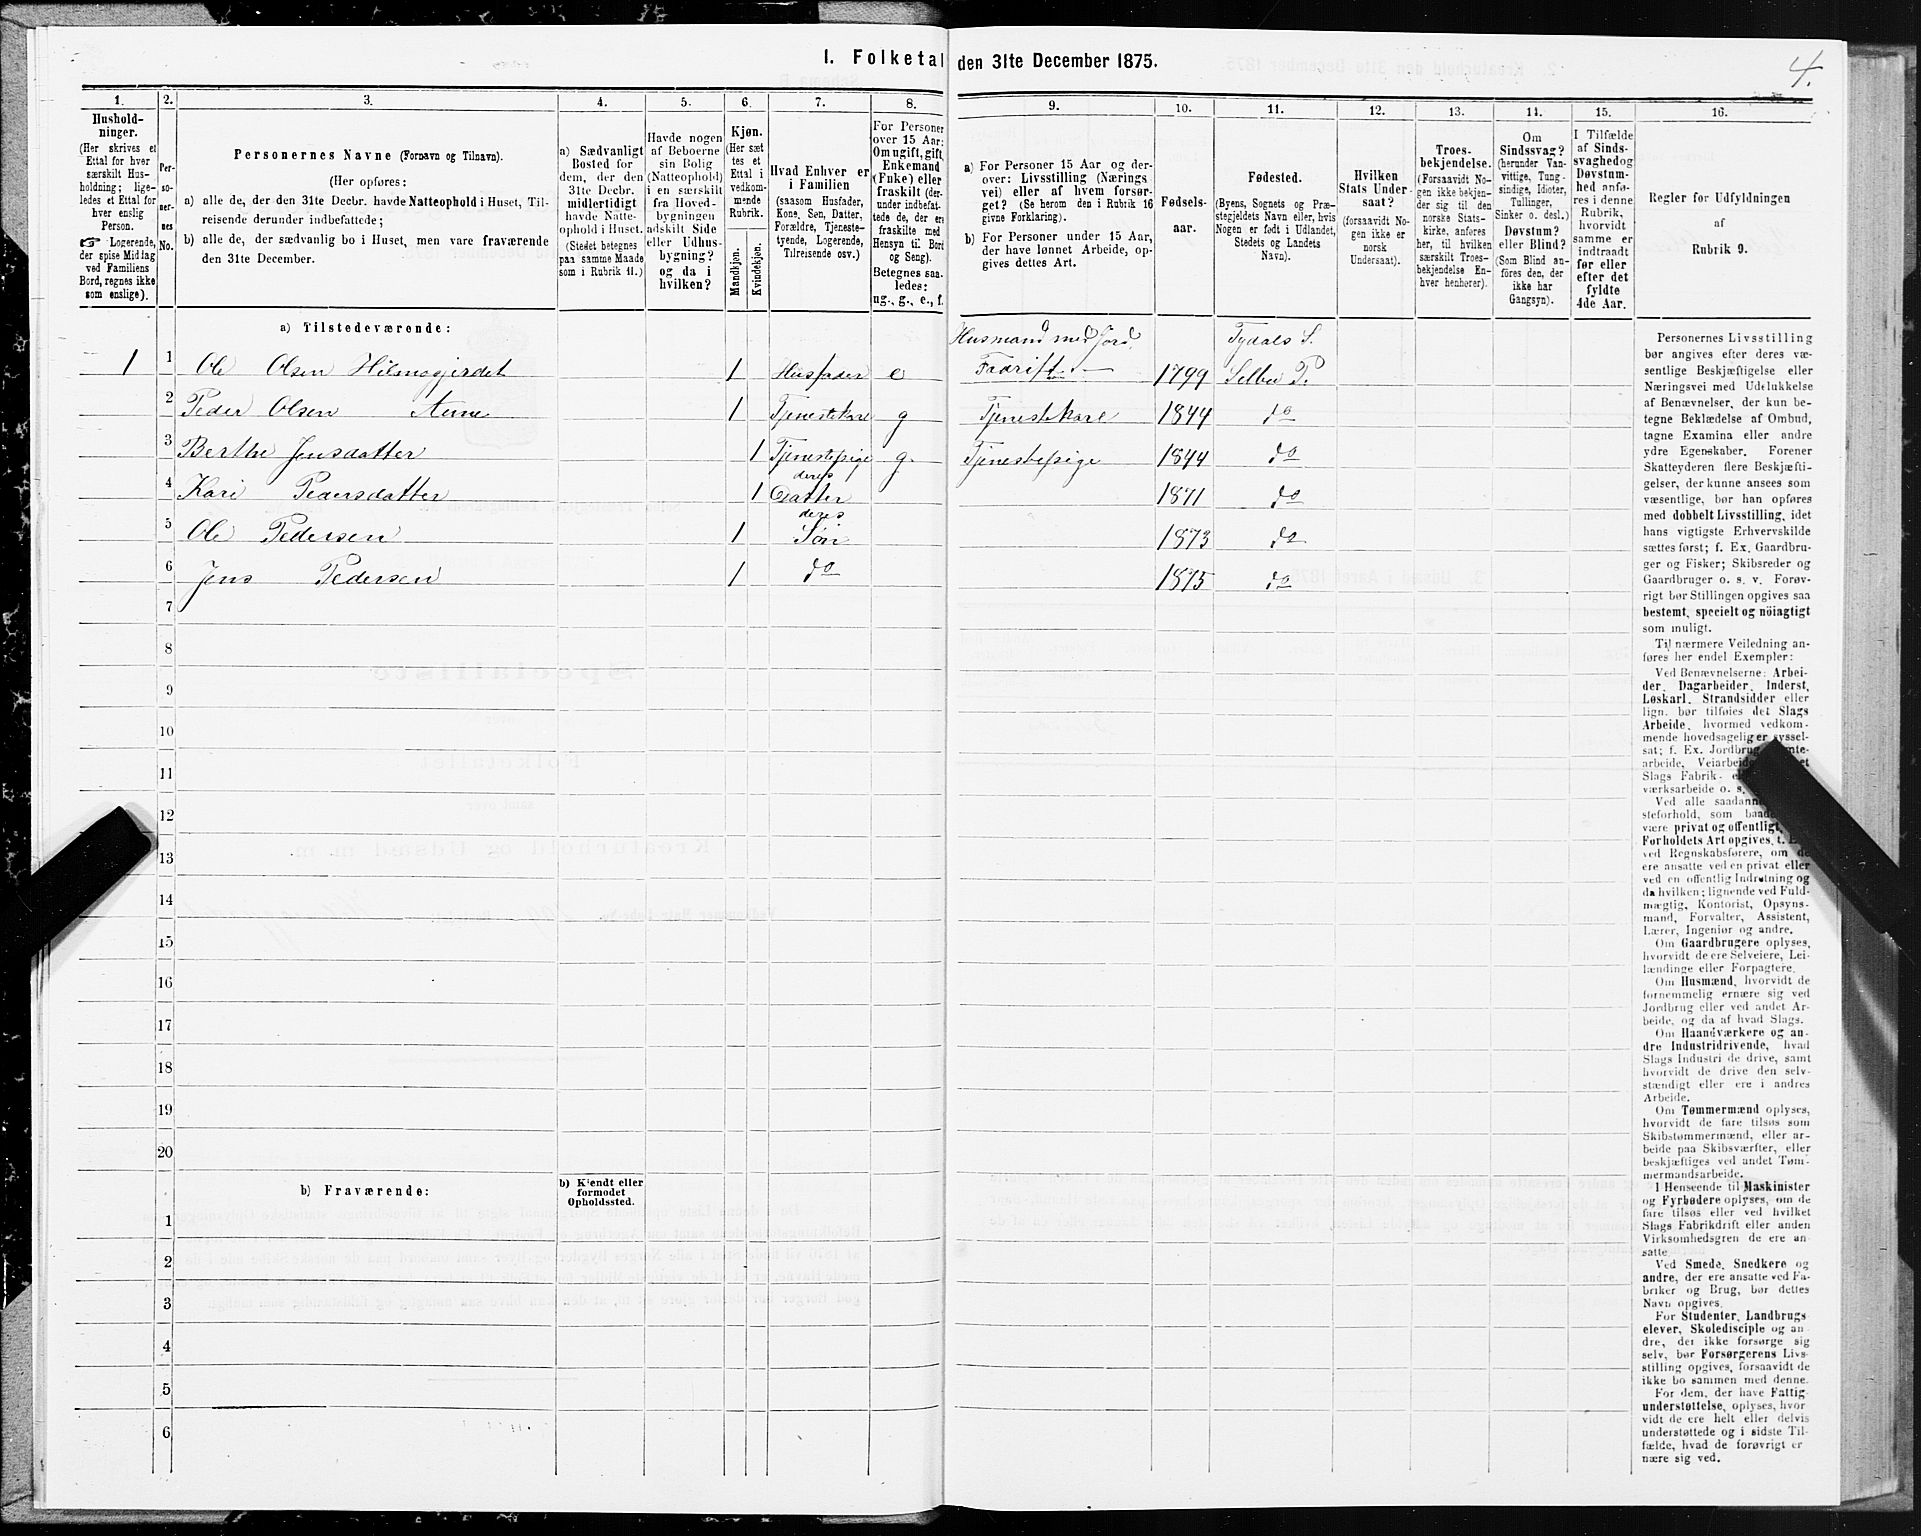 I. Folketal den 31te December 1875.
4.
1.
2.
3.
4.
5.
6.
7.
8.
9.
10.
11.
12.
13.
14.
15.
16.
Hushold-
ninger.
(Her skrives et
Ettal for hver
særskilt Hus-
holdning; lige-
ledes et Ettal for
hver enslig
Person.
☞ Logerende,
der spise Middag
ved Familiens
Bord, regnes ikke
som enslige).
Per-
so-
ner-
nes
No.
Personernes Navne (Fornavn og Tilnavn).
(Her opføres:
a) alle de, der den 31te Decbr. havde Natteophold i Huset, Til-
reisende derunder indbefattede;
b) alle de, der sædvanlig bo i Huset, men vare fraværende
den 31te December.
a) Sædvanligt
Bosted for
dem, der den
31te Decbr.
midlertidigt
havde Natte-
ophold i Huset.
(Stedet betegnes
paa samme Maade
som i Rubrik 11.)
Havde nogen
af Beboerne
sin Bolig
(Natteophold)
i en særskilt
fra Hoved-
bygningen
adskilt Side
eller Udhus-
bygning?
og da i
hvilken?
Kjøn.
(Her sæt
tes et
Ettal i
vedkom-
mende
Rubrik.
Mandkjøn.
Kvindekjøn.
Hvad Enhver er
i Familien
(saasom Husfader,
Kone, Søn, Datter,
Forældre, Tjeneste-
tyende, Logerende,
Tilreisende osv.)
For Personer
over 15 Aar:
Om ugift, gift,
Enkemand
(Enke) eller
fraskilt (der-
under indbefat-
tede de, der ere
fraskilte med
Hensyn til Bord
og Seng).
Betegnes saa-
ledes:
ug., g., e., f.
a) For Personer 15 Aar og der-
over: Livsstilling (Nærings-
vei) eller af hvem forsør-
get? (Se herom den i Rubrik 16
givne Forklaring).
b) For Personer under 15 Aar,
der have lønnet Arbeide, op-
gives dettes Art.
Fødsels-
aar.
Fødested.
(Byens, Sognets og Præ-
stegjeldets Navn eller, hvis
Nogen er født i Udlandet,
Stedets og Landets
Navn).
Hvilken
Stats Under-
saat?
(forsaavidt No-
gen ikke er
norsk
Undersaat).
Troes-
bekjendelse.
(Forsaavidt No-
gen ikke bekjen-
der sig til den
norske Stats-
kirke, anføres
her, til hvilken
særskilt Troes-
bekjendelse En-
hver henhører).
Om
Sindssvag?
(herunder Van-
vittige, Tung-
sindige, Idioter,
Tullinger,
Sinker o. desl.)
Døvstum?
eller Blind?
(Som Blind an-
føres den, der
ikke har
Gangsyn).
I Tilfælde
af Sinds-
svaghed og
Døvstum-
hed anfø-
res i denne
Rubrik,
hvorvidt
samme er
indtraadt
før eller
efter det
fyldte
4de Aar.
Regler for Udfyldningen
af
Rubrik 9.
a) Tilstedeværende:
Husmand med Jord
Tydals S.
1 1 Ole Olsen Hilmogjerdet 1 Husfader e Fadrift 1799 Selbu P.
2 Peder Olsen Aune 1 Tjenestekarl g Tjenestekarl 1844 do
3 Berthe Jensdatter 1 Tjenestepige g. Tjenestepige 1844 do
deres
4 Kari Pedersdatter 1 Datter 1871 do
deres
5 Ole Pedersen 1 Søn 1873 do
6 Jens Pedersen 1 do 1875 do
7
8
9
10
11
12
13
14
15
16
17
18
19
20
b) Fraværende:
b) Kjendt eller
formodet
Opholdssted.
1
2
3
4
5
6
Personernes Livsstilling
bør angives efter deres væ-
sentlige Beskjæftigelse eller
Næringsvei med Udelukkelse
af Benævnelser, der kun be-
tegne Beklædelse af Ombud,
tagne Examina eller andre
ydre Egenskaber. Forener
Skatteyderen flere Beskjæfti-
gelser, der kunne ansees som
væsentlige, bør han opføres
med dobbelt Livsstilling, idet
hans vigtigste Erhvervskilde
sættes først; f. Ex. Gaardbru-
ger og Fisker; Skibsreder og
Gaardbruger o. s. v. Forøv-
rigt bør Stillingen opgives saa
bestemt, specielt og nöiagtigt
som muligt.
Til nærmere Veiledning an-
føres her endel Exempler:
Ved Benævnelserne: Arbei-
der, Dagarbeider, Inderst,
Løskarl, Strandsidder eller
lign. bør tilføies det Slags
Arbeide, hvormed vedkom-
mende hovedsagelig er syssel-
sat; f. Ex. Jordbrug,
arbeide, Veiarbeide
Slags Fabrik-
værksarbeide o. s.
Ved alle saadanne
steforhold, som baade
være privat og offentligt,
Forholdets Art opgives, t. Ex.
ved Regnskabsførere, om de
ere ansatte ved en privat eller
ved en offentlig Indretning og
da hvilken; lignende ved Fuld-
mægtig, Kontorist, Opsyns-
mand, Forvalter, Assistent,
Lærer, Ingeniør og andre.
Om Gaardbrugere oplyses,
hvorvidt de ere Selveiere, Lei-
lændinge eller Forpagtere.
Om Husmænd, hvorvidt de
fornemmelig ernære sig ved
Jordbrug eller ved andet Ar-
beide, og da af hvad Slags.
Om Haandværkere og an-
dre Industridrivende, hvad
Slags Industri de drive, samt
hvorvidt de drive den selv-
stændigt eller ere i andres
Arbeide.
Om Tømmermænd oplyses,
hvorvidt de fare tilsøs som
Skibstømmermænd, eller ar-
beide paa Skibsværfter, eller
beskjæftiges ved andet Tøm-
mermandsarbeide.
I Henseende til Maskinister
og Fyrbødere oplyses, om de
fare tilsøs eller ved hvilket
Slags Fabrikdrift eller anden
Virksomhedsgren de ere an-
satte.
Ved Smede, Snedkere og
andre, der ere ansatte ved Fa-
briker og Brug, bør dettes
Navn opgives.
For Studenter, Landbrugs-
elever, Skoledisciple og an-
dre, der ikke forsørge sig
selv, bør Forsørgerens Livs-
stilling opgives, forsaavidt de
ikke bo sammen med denne.
For dem, der have Fattig-
understøttelse, oplyses, hvor-
vidt de ere helt eller delvis
understøttede og i sidste Til-
fælde, hvad de forøvrigt er-
nære sig ved.